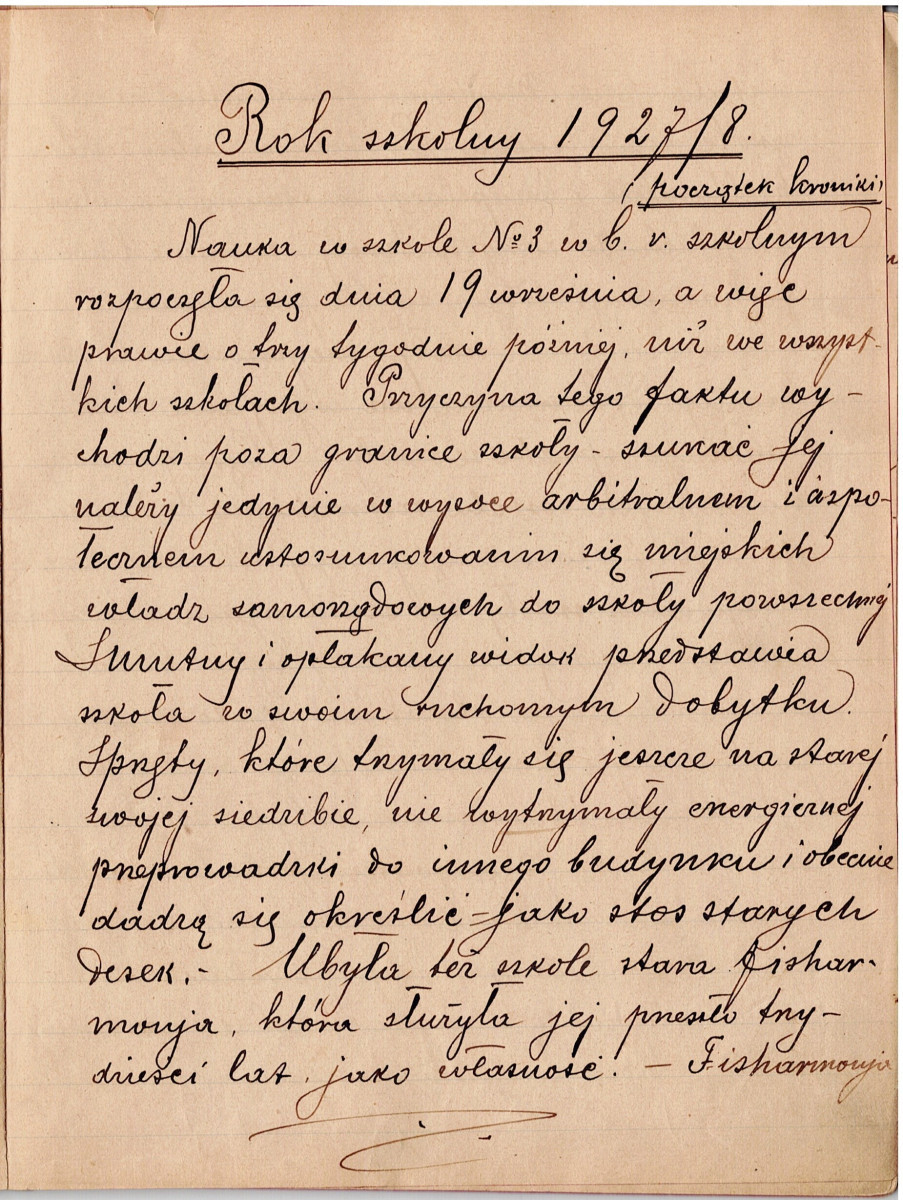 Rok szkolny 1927/8.
(początek kroniki)
Nauka w szkole № 3 w b. r. szkolnym
rozpoczęła się dnia 19 września, a więc
prawie o trzy tygodnie później, niż we wszyst-
kich szkołach. Przyczyna tego faktu wy-
chodzi poza granice szkoły - szukać jej
należy jedynie w wysoce arbitralnem i aspo-
łecznem ustosunkowaniu się miejskich
władz samorządowych do szkoły powszechnej
Smutny i opłakany widok przedstawia
szkoła w swoim ruchomym dobytku.
Sprzęty, które trzymały się jeszcze na starej
swojej siedzibie, nie wytrzymały energicznej
przeprowadzki do innego budynku i obecnie
dadzą się określić - jako stos starych
desek. - Ubyła też szkole stara fishar-
monja, która służyła jej przeszło trzy-
dzieści lat, jako własność. - Fisharmonja